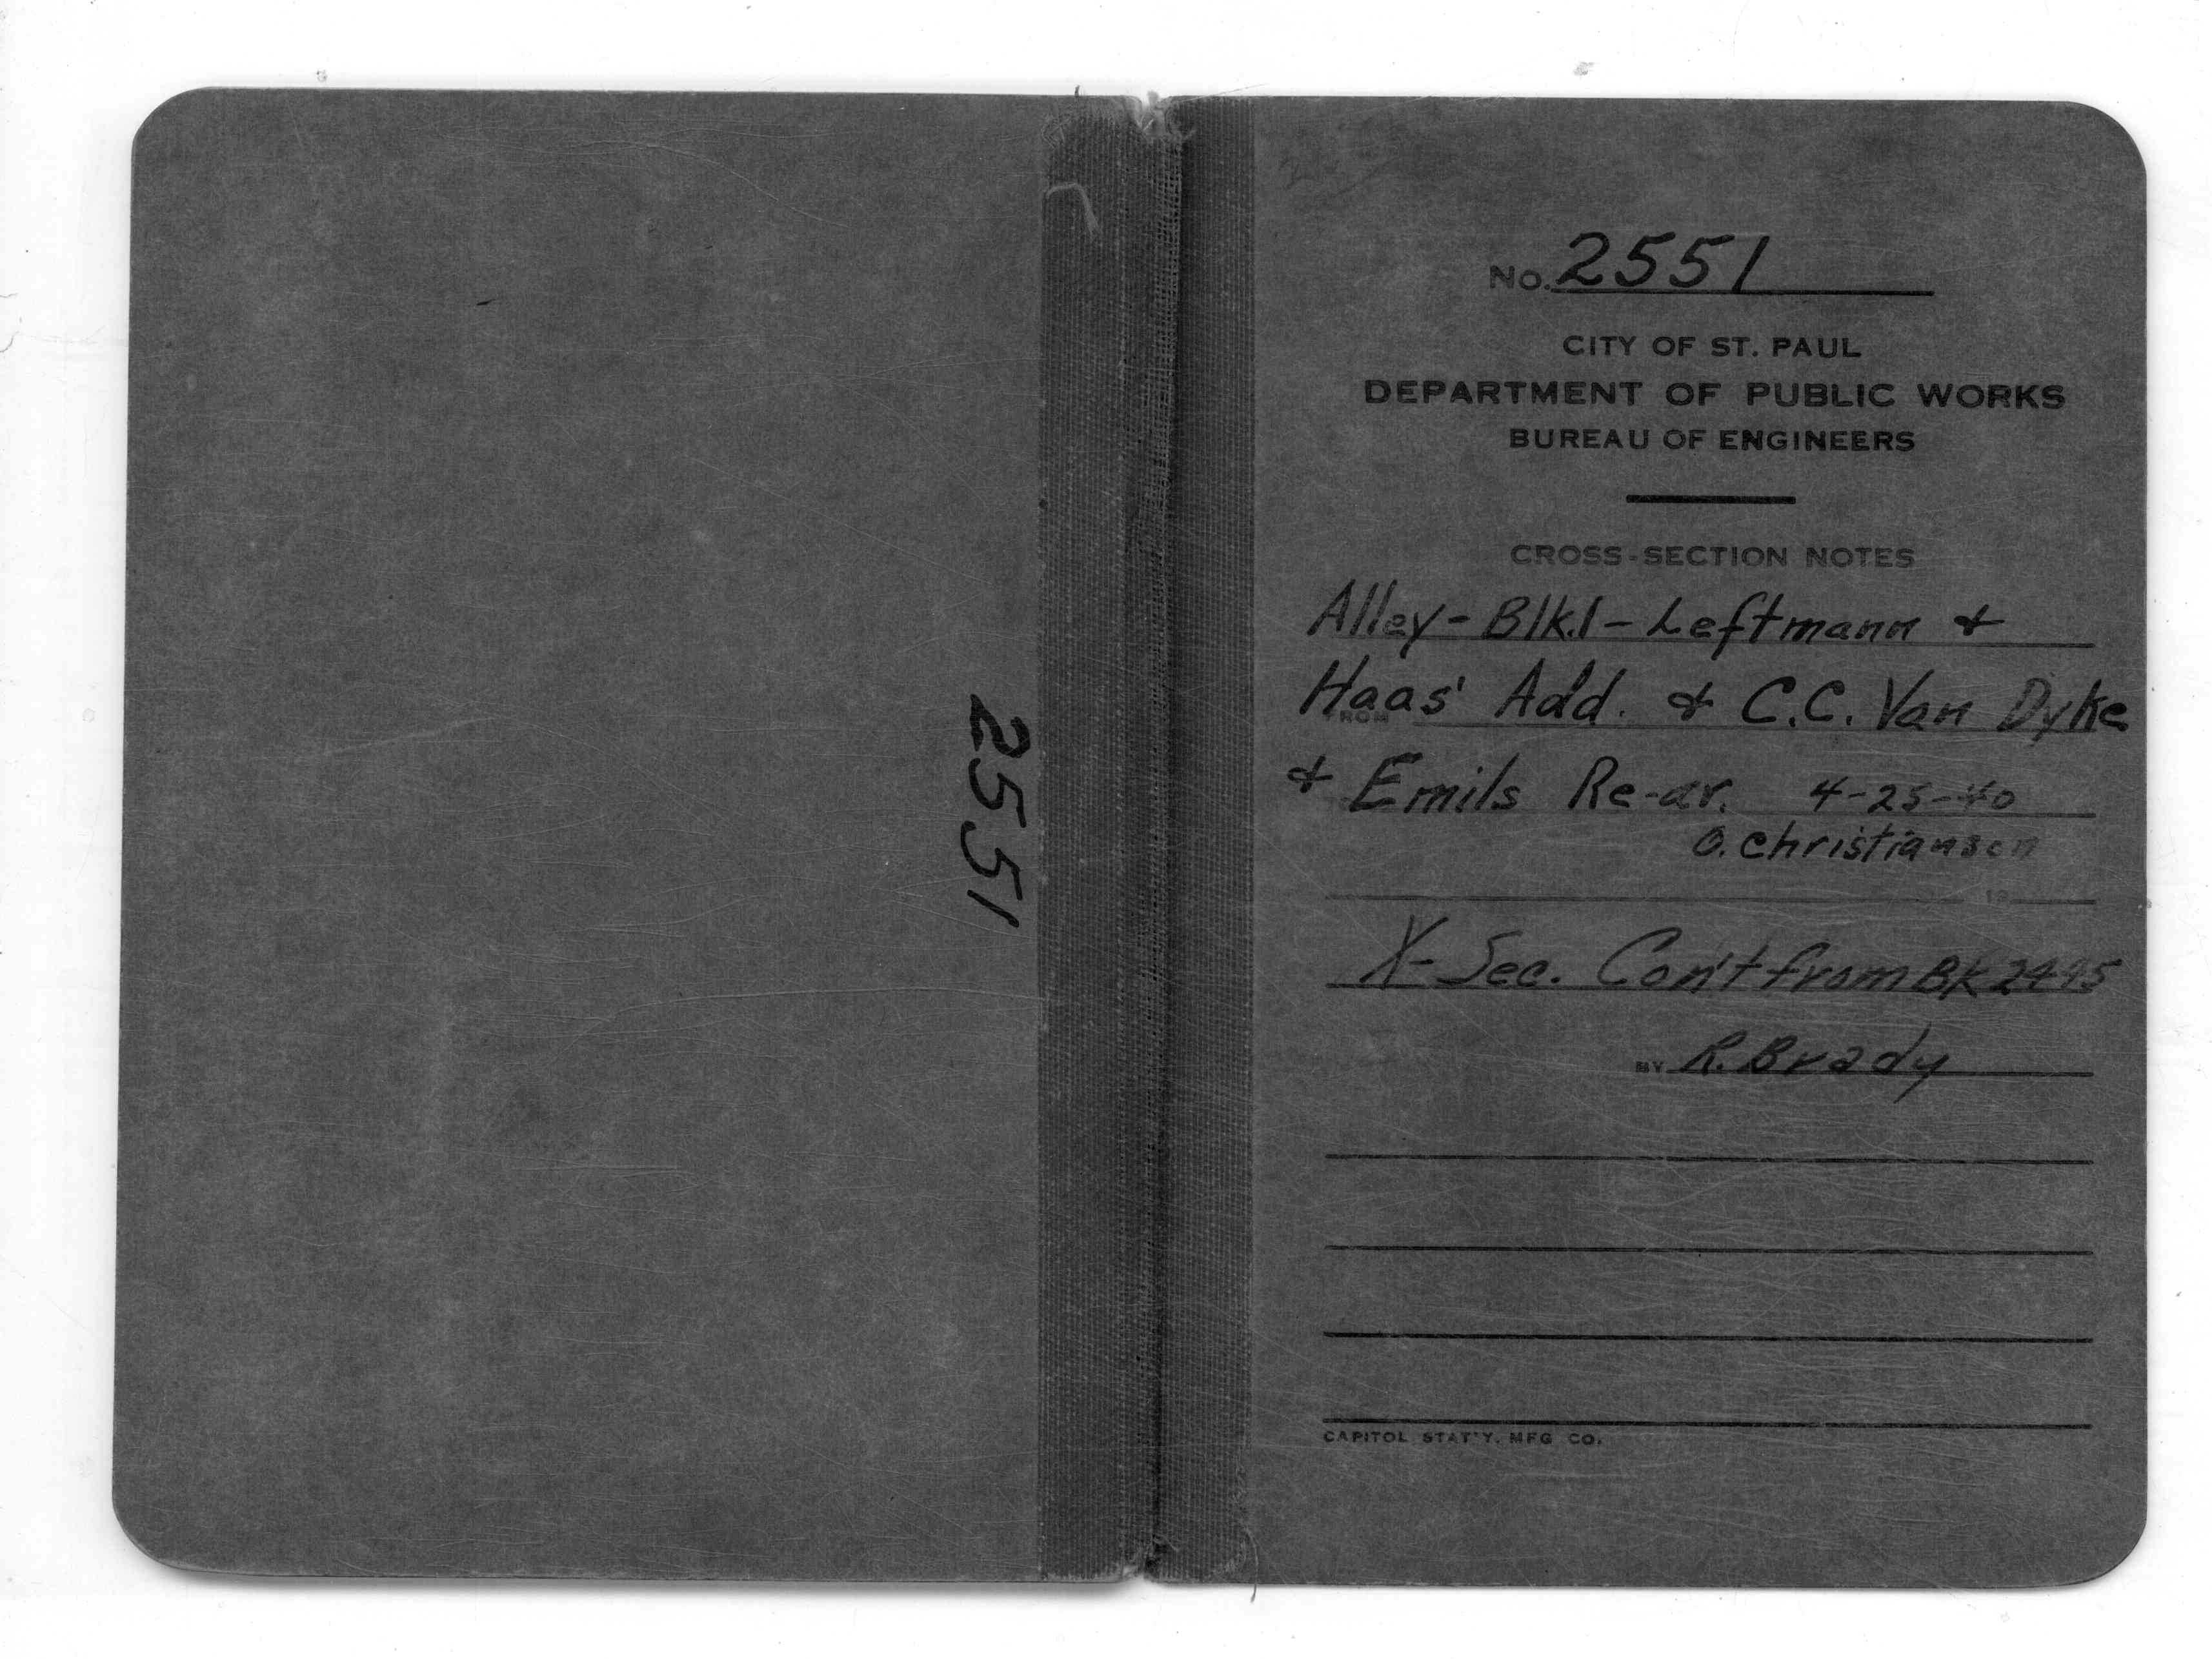 2551
No. 2551
CITY OF ST. PAUL
DEPARTMENT OF PUBLIC WORKS
BUREAU OF ENGINEERS
CROSS-SECTION NOTES
Alley - Blk.1 - Leftmann &
Haas' Add. & C.C. Van Dyke
FROM
& Emils Re-ar. 4-25-40
O. Christianson
19
X-Sec. Con't from BK 2495
BY R. Brady
CAPITOL STAT'Y. MFG CO.